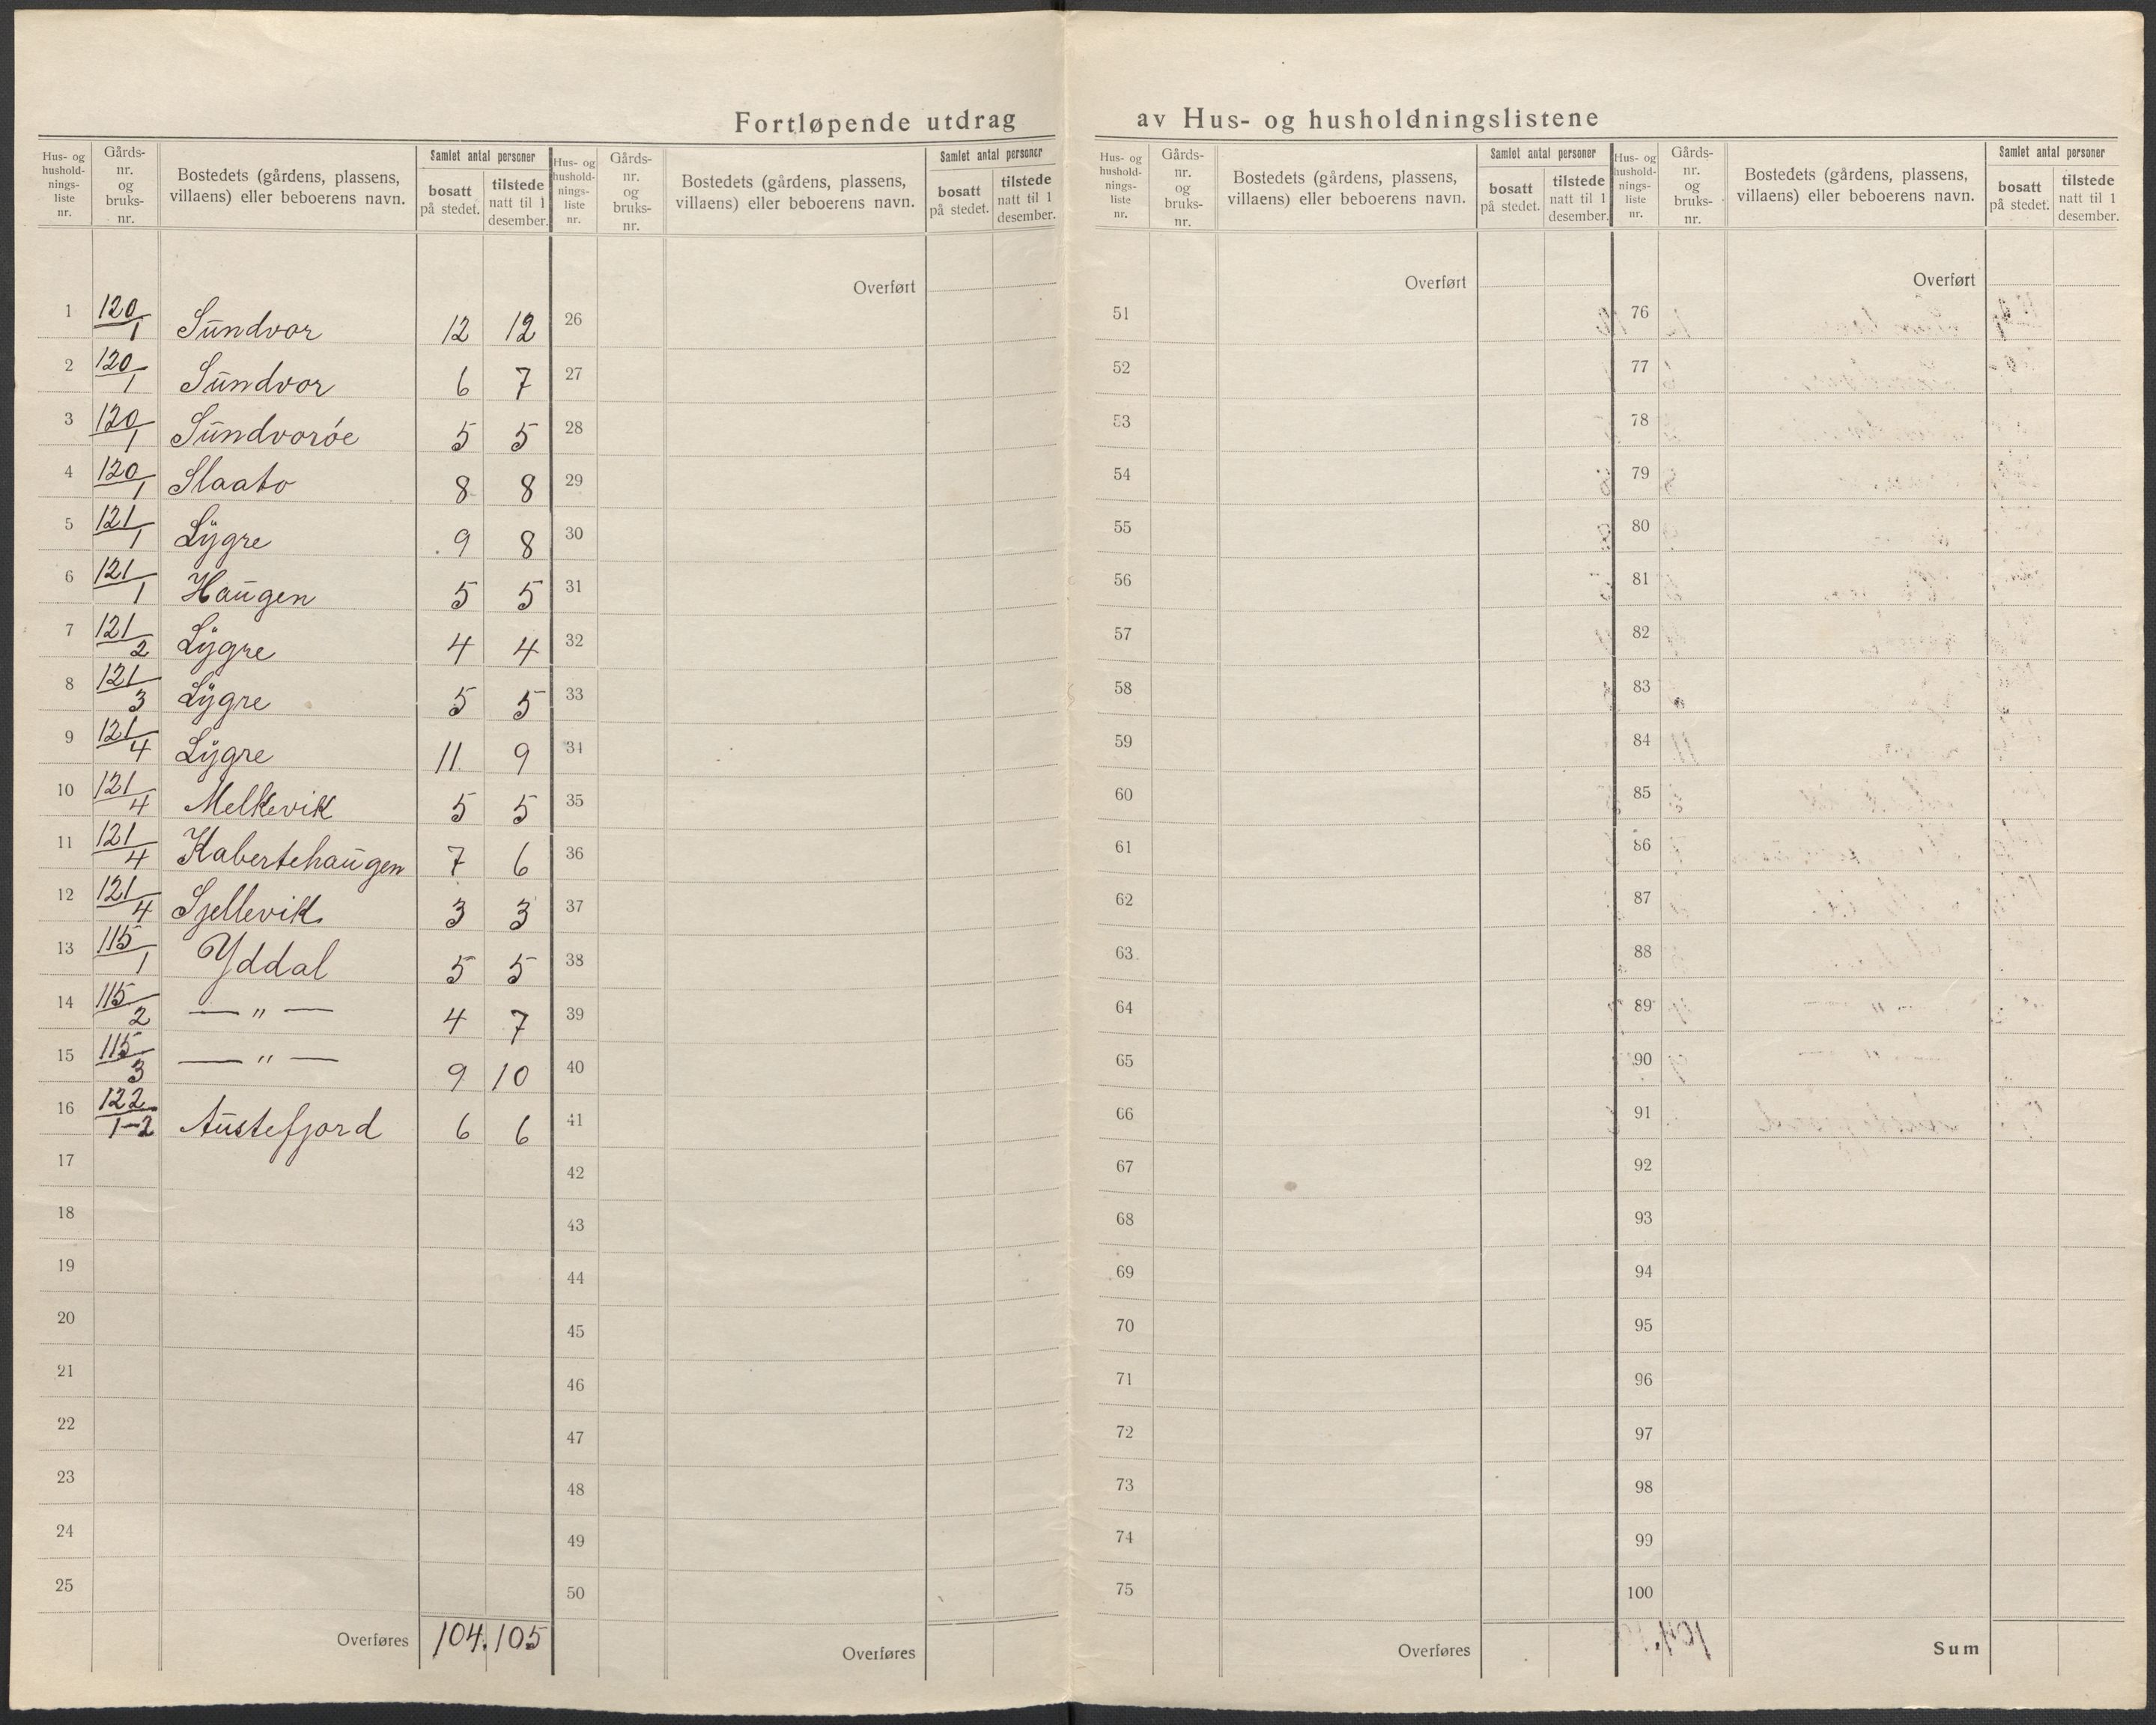 Fortløpende utdrag av Hus- og husholdningslistene
Hus- og hushold-nings-liste nr. | Gårds-nr. og bruks-nr. | Bostedets (gårdens, plassens, villaens) eller beboerens navn. | Samlet antal personer | bosatt på stedet. | tilstede natt til 1 desember.
1 120/1 Sundvor 12 12
2 120/1 Sundvor 6 7
3 120/1 Sundvorøe 5 5
4 120/1 Slaato 8 8
5 121/1 Lygre 9 8
6 121/1 Haugen 5 5
7 121/2 Lygre 4 4
8 121/3 Lygre 5 5
9 121/4 Lygre 11 9
10 121/4 Melkevik 5 5
11 121/4 Kabertehaugen 7 6
12 121/4 Sjellevik 3 3
13 115/1 Yddal 5 5
14 115/2 — " — 4 7
15 115/3 — " — 9 10
16 122/1-2 Austefjord 6 6
17
18
19
20
21
22
23
24
25
Overføres 104. 105
Hus- og hushold-nings-liste nr. | Gårds-nr. og bruks-nr. | Bostedets (gårdens, plassens, villaens) eller beboerens navn. | Samlet antal personer | bosatt på stedet. | tilstede natt til 1 desember.
Overført
26
27
28
29
30
31
32
33
34
35
36
37
38
39
40
41
42
43
44
45
46
47
48
49
50
Overføres
Hus- og hushold-nings-liste nr. | Gårds-nr. og bruks-nr. | Bostedets (gårdens, plassens, villaens) eller beboerens navn. | Samlet antal personer | bosatt på stedet. | tilstede natt til 1 desember.
Overført
51
52
53
54
55
56
57
58
59
60
61
62
63
64
65
66
67
68
69
70
71
72
73
74
75
Overføres
Hus- og hushold-nings-liste nr. | Gårds-nr. og bruks-nr. | Bostedets (gårdens, plassens, villaens) eller beboerens navn. | Samlet antal personer | bosatt på stedet. | tilstede natt til 1 desember.
Overført
76
77
78
79
80
81
82
83
84
85
86
87
88
89
90
91
92
93
94
95
96
97
98
99
100
Sum